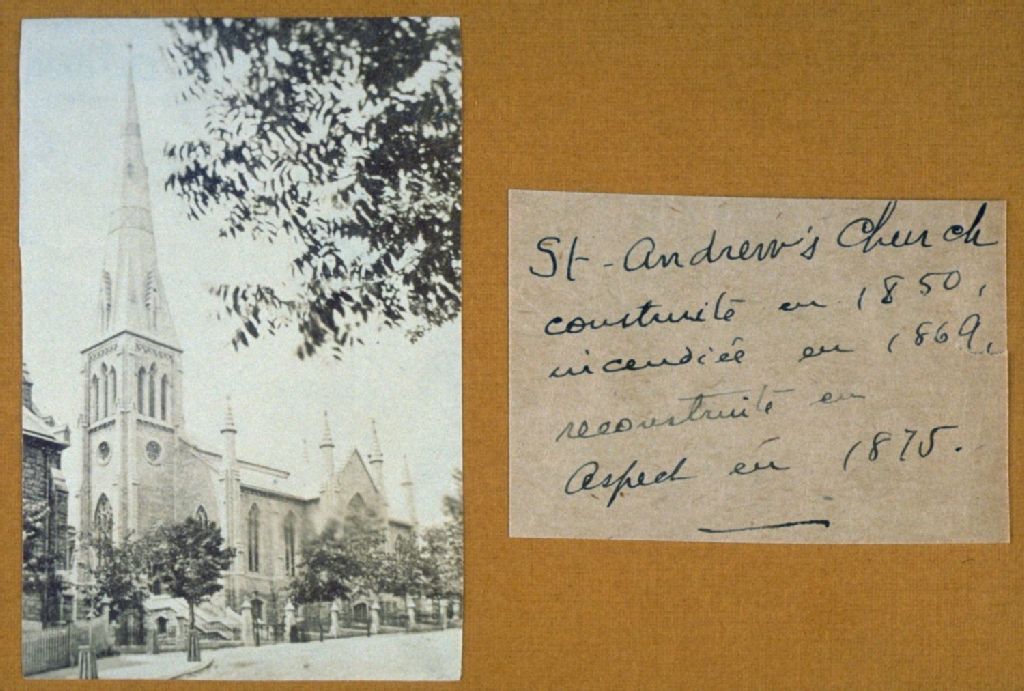 St-Andrew's Church
construite en 1850,
incendiée en 1869,
reconstruite en
Aspect en 1875.